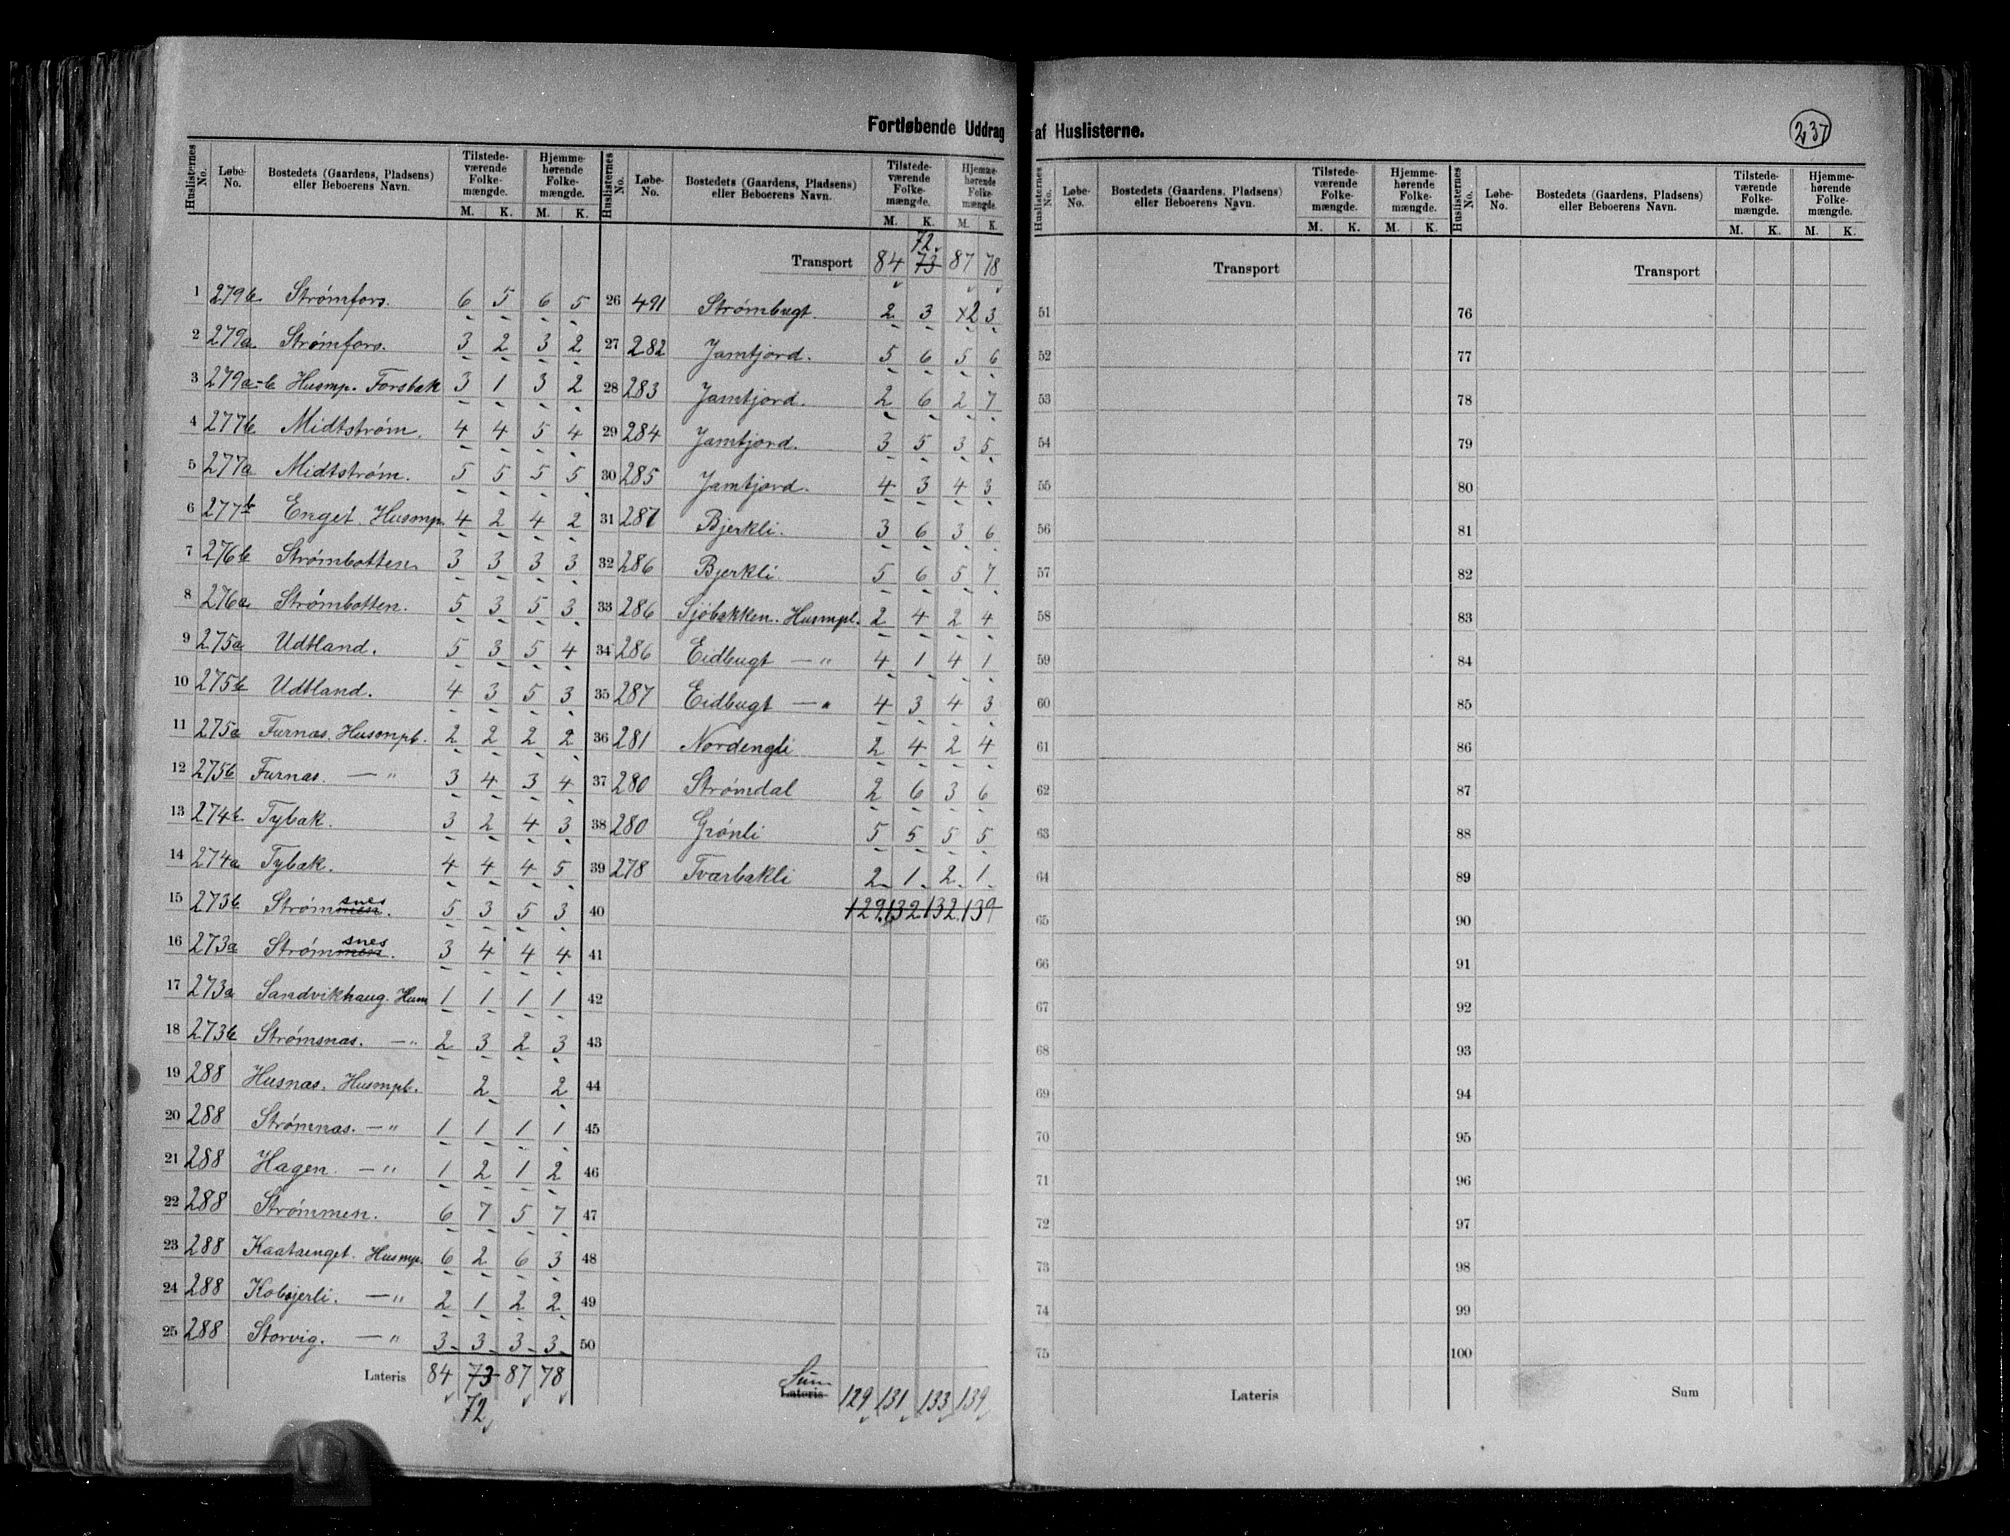 Fortløbende Uddrag af Huslisterne.
237
Huslisternes No. Løbe-No. Bostedets (Gaardens, Pladsens) eller Beboerens Navn. Tilstedeværende Folkemængde. M. K. Hjemmehørende Folkemængde. M. K.
1 279b Strømfors. 6 5 6 5
2 279a Strømfors. 3 2 3 2
3 279a-b Husmp. Forsbak 3 1 3 2
4 277b Midtstrøm. 4 4 5 4
5 277a Midtstrøm. 5 5 5 5
6 277b Enget. Husmp. 4 2 4 2
7 276b Strømbotten 3 3 3 3
8 276a Strømbotten. 5 3 5 3
9 275a Udtland. 5 3 5 4
10 275b Udtland. 4 3 5 3
11 275a Furnas. Husmpl. 2 2 2 2
12 275b Furnas. —〃 3 4 3 4
13 274b Tybak. 3 2 4 3
14 274a Tybak. 4 4 4 5
15 273b Strømmen snes. 5 3 5 3
16 273a Strømmen snes. 3 4 4 4
17 273a Sandvikhaug. Husm 1 1 1 1
18 273b Strømsnas. —〃 2 3 2 3
19 288 Husnas. Husmpl. 2 2
20 288 Strømnas. —〃 1 1 1 1
21 288 Hagen. —〃 1 2 1 2
22 288 Strømmen. 6 7 5 7
23 288 Kaataenget. Husmp. 6 2 6 3
24 288 Kobbjerli. —〃 2 1 2 2
25 288 Storvig. —〃 3 3 3 3
Lateris 84 73 87 78
72
Huslisternes No. Løbe-No. Bostedets (Gaardens, Pladsens) eller Beboerens Navn. Tilstedeværende Folkemængde. M. K. Hjemmehørende Folkemængde. M. K.
72
Transport 84 73 87 78
26 491 Strømbugt. 2 3 x2 3
27 282 Jamtjord. 5 6 5 6
28 283 Jamtjord. 2 6 2 7
29 284 Jamtjord. 3 5 3 5
30 285 Jamtjord. 4 3 4 3
31 287 Bjerkli. 3 6 3 6
32 286 Bjerkli. 5 6 5 7
33 286 Sjöbakken. Husmpl. 2 4 2 4
34 286 Eidbugt —〃 4 1 4 1
35 287 Eidbugt —〃 4 3 4 3
36 281 Nordengli 2 4 2 4
37 280 Strømdal 2 6 3 6
38 280 Grönli 5 5 5 5
39 278 Tvarbakli 2 1 2 1
40 129 132 132 139
41
42
43
44
45
46
47
48
49
50
Sum
Lateris 129 131 133 139
Huslisternes No. Løbe-No. Bostedets (Gaardens, Pladsens) eller Beboerens Navn. Tilstedeværende Folkemængde. M. K. Hjemmehørende Folkemængde. M. K.
Transport
51
52
53
54
55
56
57
58
59
60
61
62
63
64
65
66
67
68
69
70
71
72
73
74
75
Lateris
Huslisternes No. Løbe-No. Bostedets (Gaardens, Pladsens) eller Beboerens Navn. Tilstedeværende Folkemængde. M. K. Hjemmehørende Folkemængde. M. K.
Transport
76
77
78
79
80
81
82
83
84
85
86
87
88
89
90
91
92
93
94
95
96
97
98
99
100
Sum